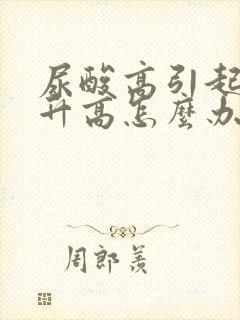 尿酸高引起
升高怎麼办
周郎羨